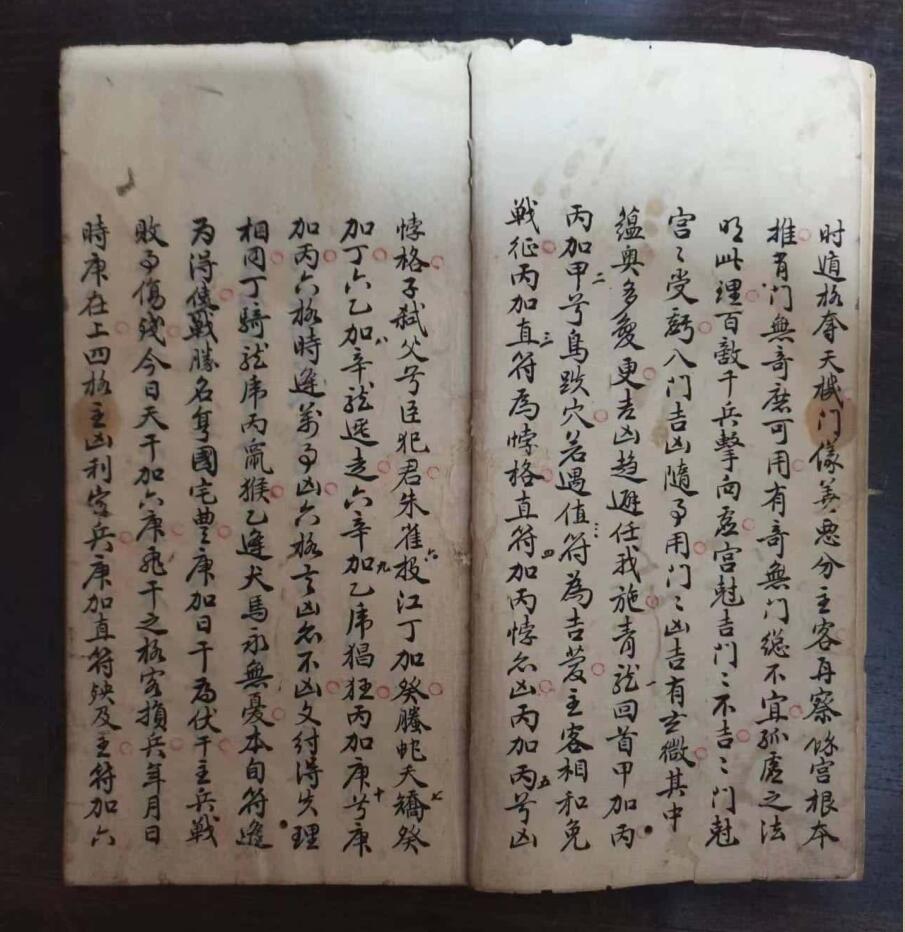 时遁格奪天機门儀善惡分主客再察飛宫根本
推有门無奇庶可用有奇無门總不宜孤虛之法
明此理百敵千兵擊向虛宫尅吉门〻不吉〻门尅
宫〻受䛐八门吉凶隨事用门〻凶吉有玄微其中
藴奥多变更吉凶趋避任我施青龙回首甲加丙
丙加甲兮鳥跌穴若遇值符為吉
主客相和免
戦征丙加直符為悖格直符加丙悖亦凶丙加丙兮凶
悖格子弑父兮臣犯君朱雀投江丁加癸螣蛇夭矯癸
加丁六乙加辛龙逃走六辛加乙虎猖狂丙加庚兮庚
加丙六格時逢萬事凶六格言凶亦不凶文付得失理
相同丁騎龙虎丙
猴乙逢犬馬永無憂本旬符逢
为得使戦勝名
國宅豊庚加日干為伏干主兵戦
敗事傷残今日天干加六庚飛干之格客損兵年月日
時庚在上四格主凶利客兵庚加直符殃及主符加六